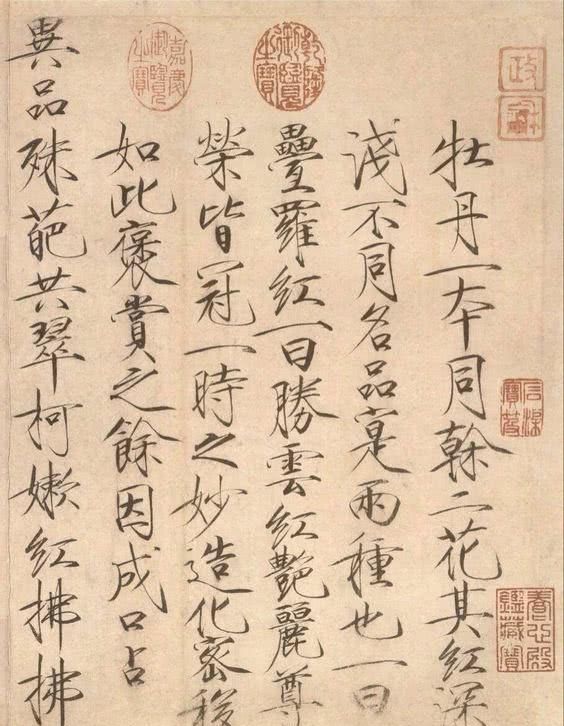 政
龢
牡丹一夲同榦二花其紅深
淺不同名品寔兩種也一曰
疊羅紅一曰勝雲紅艷麗尊
榮皆冠一時之妙造化密移
如此褒賞之餘因成口占
異品殊葩共翠柯嫩紅拂拂
乾隆御覽之寶
嘉慶御覽之寶
石渠寶笈
養心殿鑑藏寶